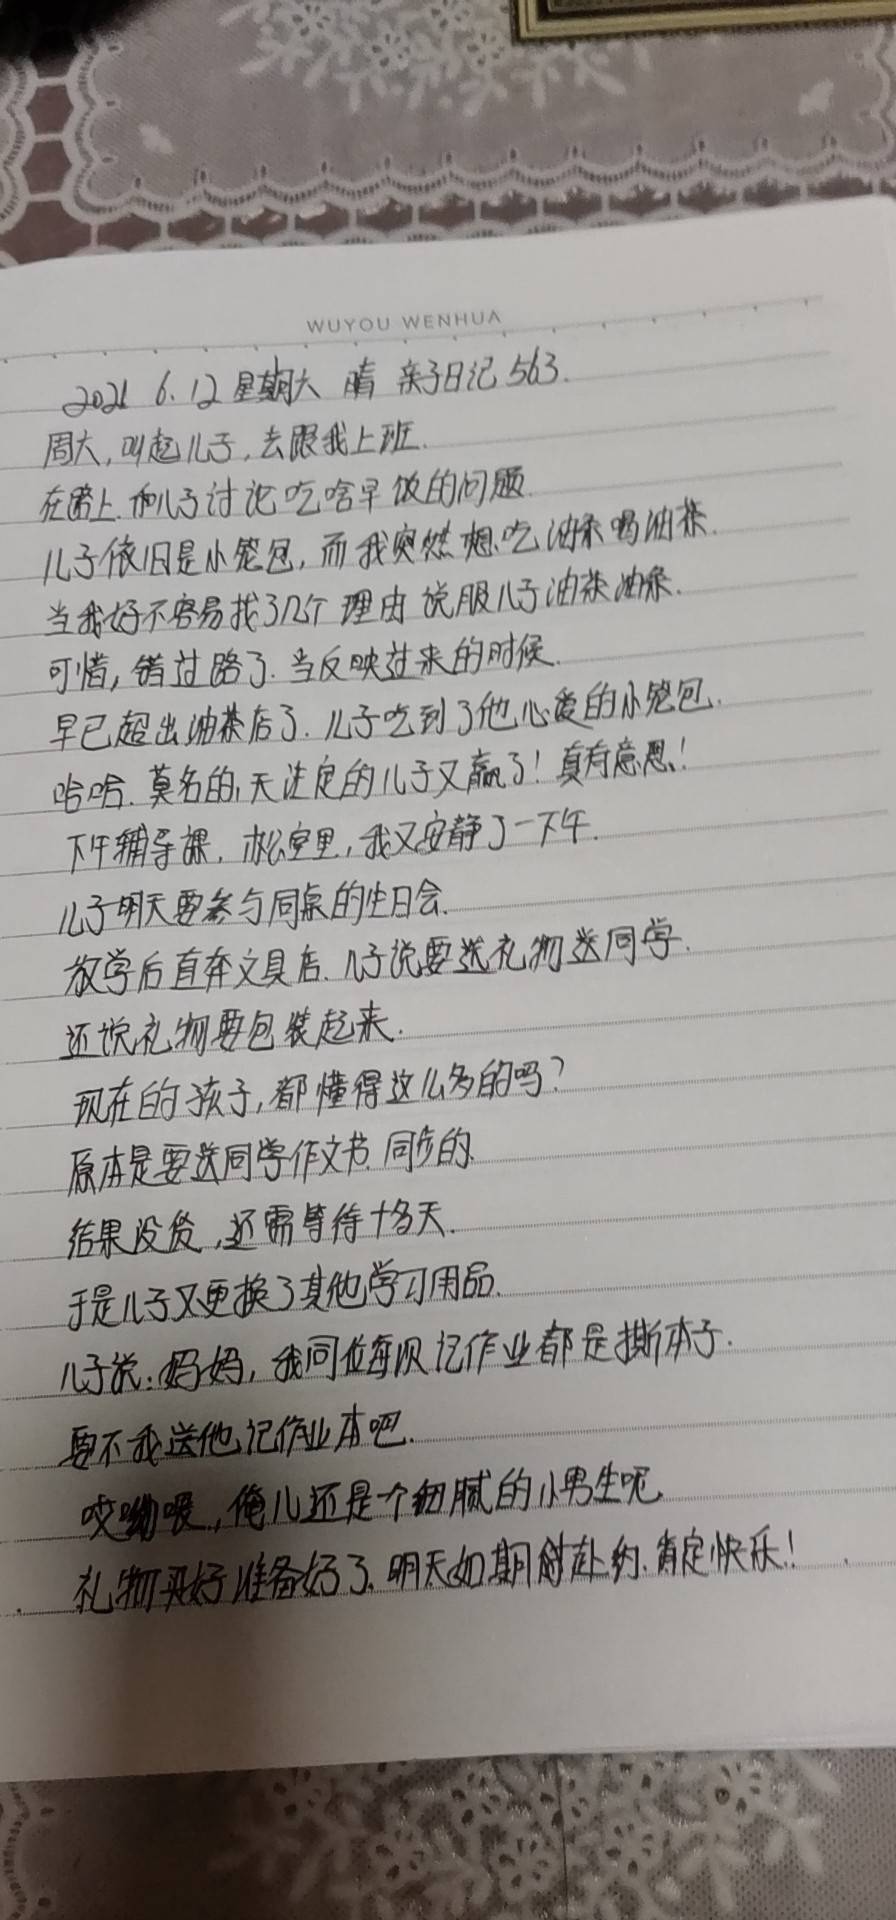 WUYOU WENHUA
2021 6.12 星期六 晴 亲子日记 563.
周六,叫起儿子,去跟我上班.
在路上.和儿子讨论吃啥早饭的问题.
儿子依旧是小笼包,而我突然想吃油条喝油茶.
当我好不容易找了几个理由说服儿子油茶油条.
可惜,错过路了.当反映过来的时候.
早已超出油茶店了.儿子吃到了他心爱的小笼包.
哈哈.莫名的,天注定的儿子又赢了!真有意思!
下午辅导课,办公室里,我又安静了一下午.
儿子明天要参与同桌的生日会.
放学后直奔文具店.儿子说要送礼物送同学.
还说礼物要包装起来.
现在的孩子,都懂得这么多的吗?
原本是要送同学作文书.同步的.
结果没货,还需等待十多天.
于是儿子又更换了其他学习用品.
儿子说:妈妈,我同位每次记作业都是撕本子.
要不我送他记作业本吧.
哎呦喂,俺儿还是个细腻的小男生呢
礼物买好准备好了.明天如期赴约.肯定快乐!